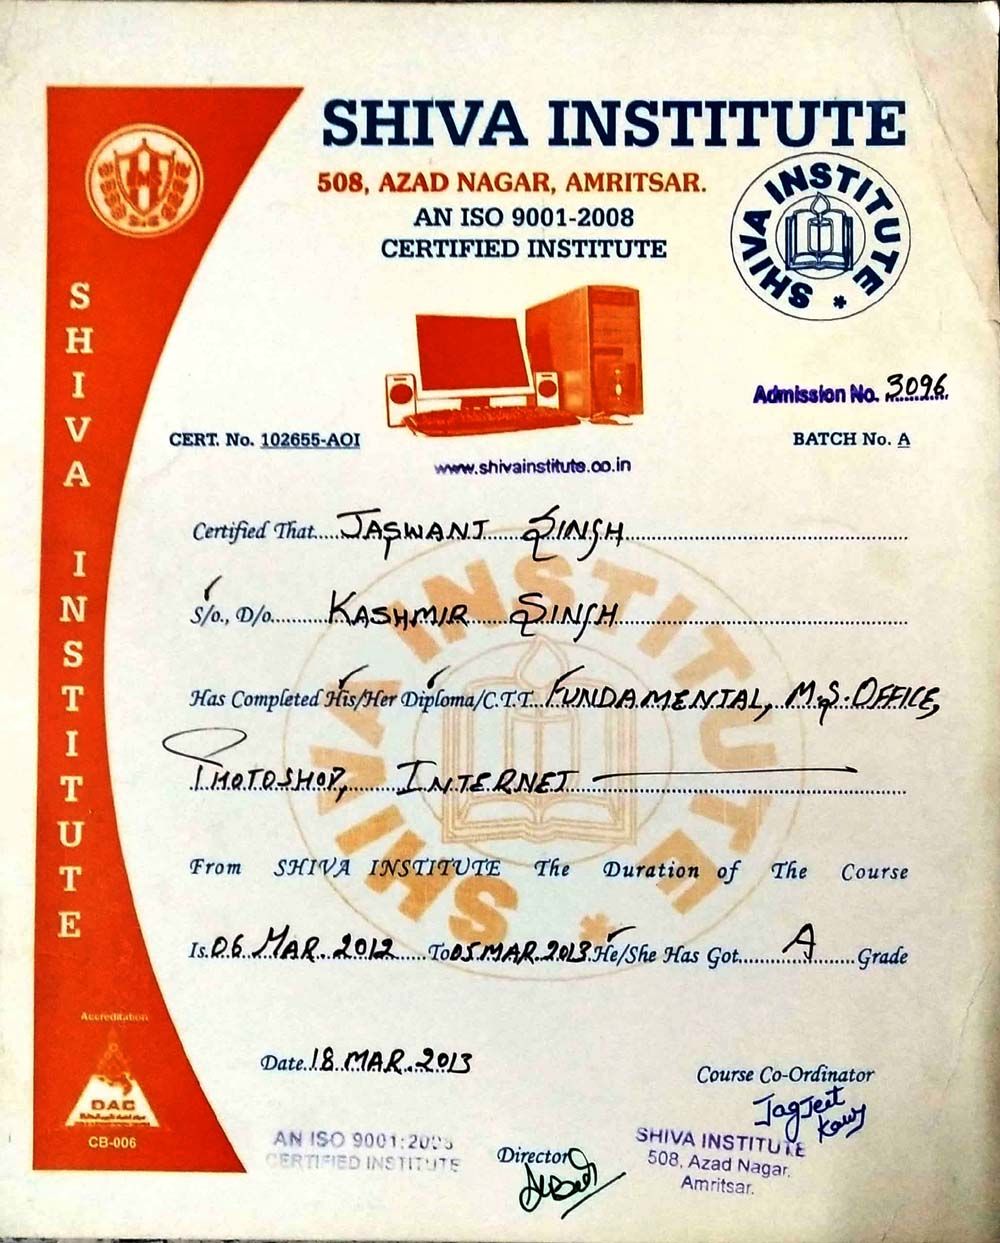 SHIVA INSTITUTE
508, AZAD NAGAR, AMRITSAR.
AN ISO 9001-2008
CERTIFIED INSTITUTE
SHIVA INSTITUTE *
SHIVA INSTITUTE
Admission No. 3096
CERT. No. 102655-AOI
BATCH No. A
www.shivainstitute.co.in
Certified That.....JASWANT SINGH
S/o., D/o..........KASHMIR SINGH
Has Completed His/Her Diploma/C.T.T. FUNDAMENTAL, M.S. OFFICE,
PHOTOSHOP, INTERNET
SHIVA INSTITUTE *
From SHIVA INSTITUTE The Duration of The Course
Is.06 MAR. 2012 To 05 MAR. 2013 He/She Has Got A Grade
Accreditation
DAC
CB-006
Date.18 MAR. 2013
Course Co-Ordinator
Jagjeet
Kaur
AN ISO 9001:2008
CERTIFIED INSTITUTE
Director
SHIVA INSTITUTE
508, Azad Nagar,
Amritsar.